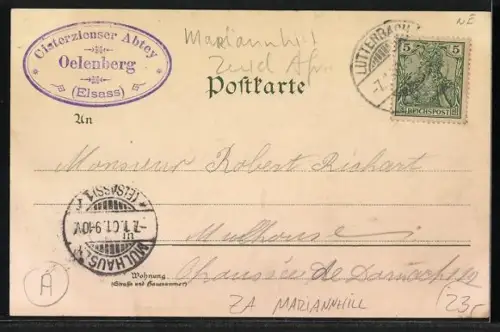 Cisterzienser Abtey
Oelenberg
(Elsass)
Mariannhill
Postkarte
LUTTERBACH
5 5
REICHSPOST
NE
An
Monsieur Robert Richart
Mulhouse
MÜLHAUSEN
7.1.01.9-10V.
(ELSASS)1
Wohnung
(Straße und Hausnummer)
Chaussée de
A
ZA MARIANNHILL
23,-